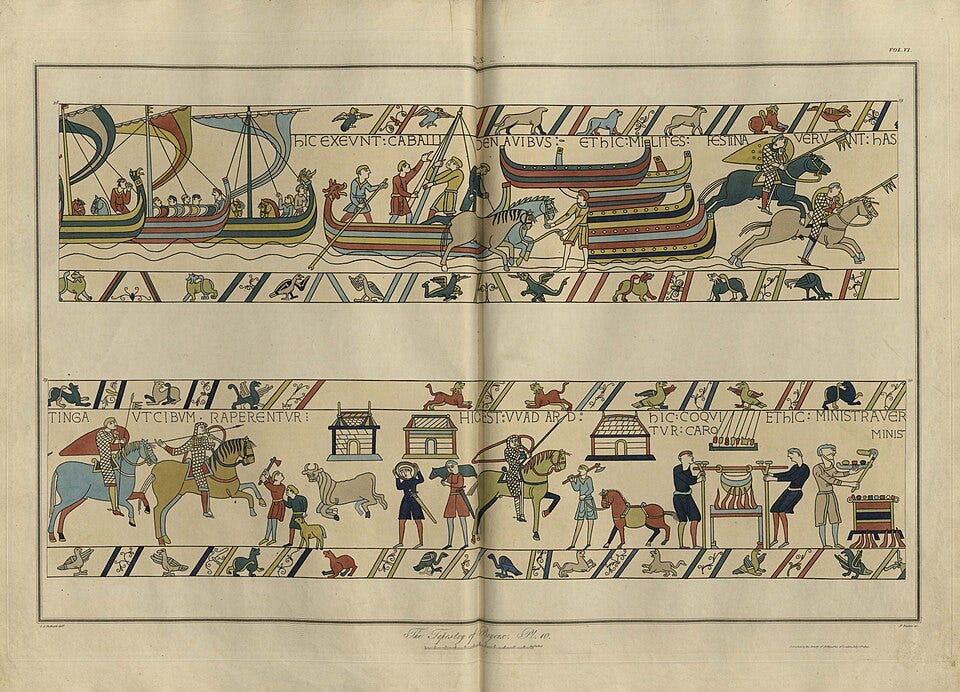 VOL. VI.
HIC EXEVNT: CABALLI DENAVIBVS:- ETHIC: MILITES: FESTINAVERVNT: HAS
TINGA VT CIBVM · RAPERENTVR:
HIC EST: VVADARD: HIC: COQVI
TVR: CARO
ETHIC: MINISTRAVER
MINIS
The Tapestry of Bayeux. Pl. 10.